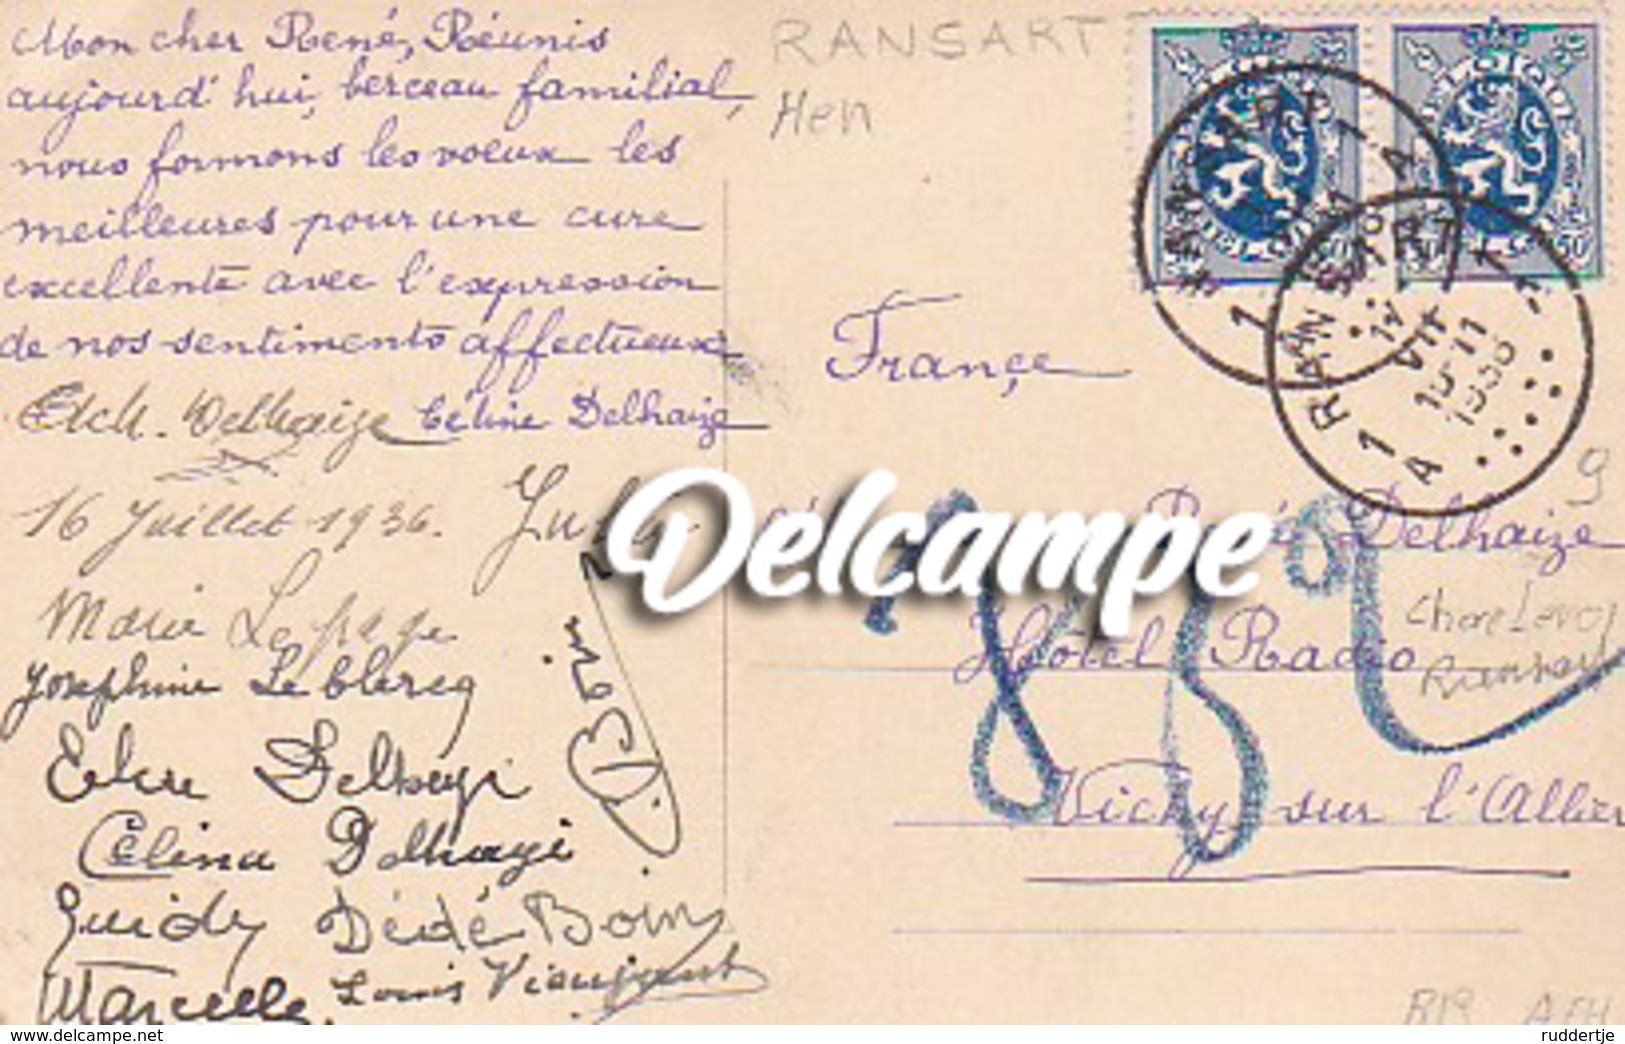 Mon cher René, Réunis
aujourd'hui, berceau familial,
nous formons les voeux les
meilleures pour une cure
excellente avec l'expression
de nos sentiments affectueux
Delhaize Céline Delhaize
16 Juillet 1936.
Marie Lepage
Joséphine Leblercq
Celina Delhaye
Guidy Dédé Boin
Marcelle Louis
D. Boin
RANSART
Hen
RANSART
1 A
1936
France
René Delhaize
Hôtel Radio
Vichy sur l'Allier
9
Ransart
Delcampe
www.delcampe.net
ruddertje